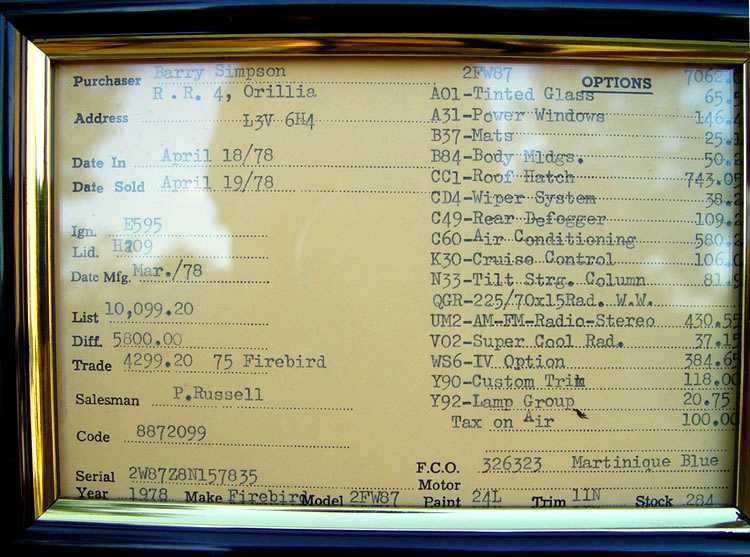 Purchaser Barry Simpson
R.R. 4, Orillia
Address L3V 6H4
Date In April 18/78
Date Sold April 19/78
Ign. E595
Lid. H209
Date Mfg. Mar./78
List 10,099.20
Diff. 5800.00
Trade 4299.20 75 Firebird
Salesman P.Russell
Code 8872099
Serial 2W87Z8N157835
Year 1978 Make Firebird Model 2FW87
2FW87 OPTIONS 7062.
A01-Tinted Glass 65.
A31-Power Windows 146.
B37-Mats 25.
B84-Body Mldgs. 50.
CC1-Roof Hatch 743.05
CD4-Wiper System 38.
C49-Rear Defogger 109.
C60-Air Conditioning 580.
K30-Cruise Control 106.
N33-Tilt Strg. Column 81.
QGR-225/70x15Rad. W.W.
UM2-AM-FM-Radio-Stereo 430.55
V02-Super Cool Rad. 37.15
WS6-IV Option 384.65
Y90-Custom Trim 118.00
Y92-Lamp Group 20.75
Tax on Air 100.00
F.C.O. 326323 Martinique Blue
Motor
Paint 24L Trim 11N Stock 284